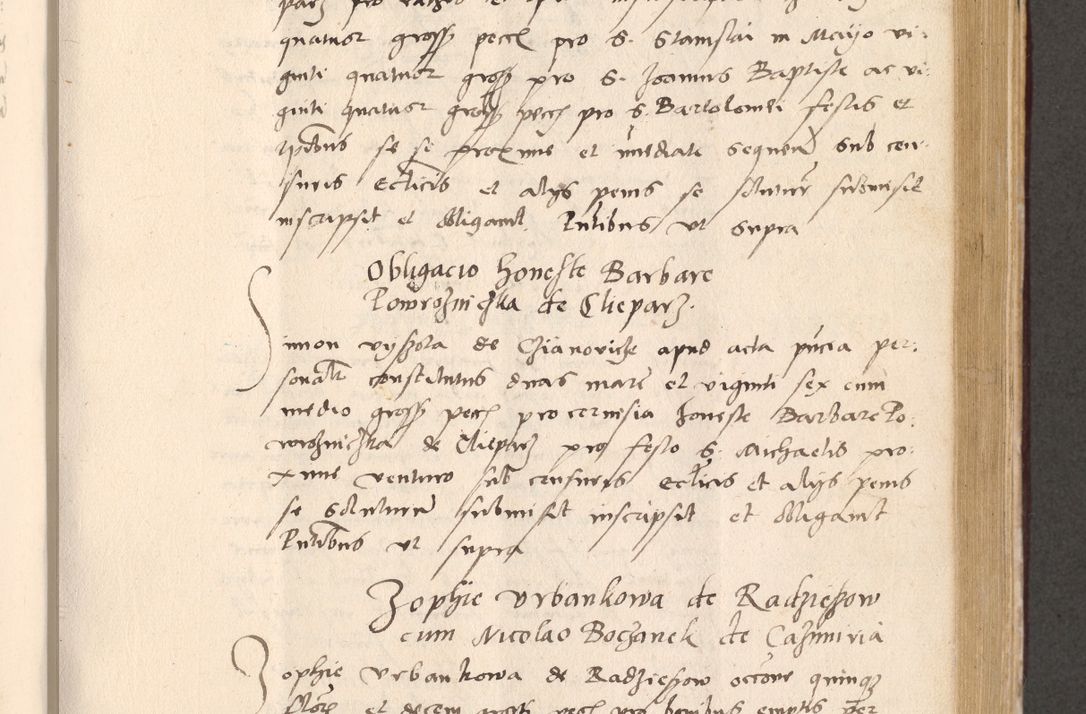 quatuor gross pecc pro S. Stanislai in Mayo vi-
ginti quatuor gross pro S. Joannis Baptiste ac vi-
ginti quatuor gross pecc pro S. Bartolomei festis et
se se proxime et imediate sequen sub cen-
suris Ecclicis et alys penis se soluturum submisit
inscripsit et obligavit. Pntibus ut supra
Obligacio honeste Barbare
Powrozniczka de Clieparz.
Simon vyssota de Czianoviche apud acta pncia per-
sonalr constitutus duas marc et viginti sex cum
medio gross pecc pro cervisia honeste Barbare Po-
wrozniczka de Clieparz pro festo S. Michaelis pro-
xime venturo sub censuris Ecclicis et alys penis
se soluturum submisit inscripsit et obligavit
Pntibus ut supra
Zophie Urbankowa de Radzieszow
cum Nicolao Boczanek de Cazimiria
Zophie Urbankowa de Radzieszow quinqz
et decem pecc pro bombus emptis per